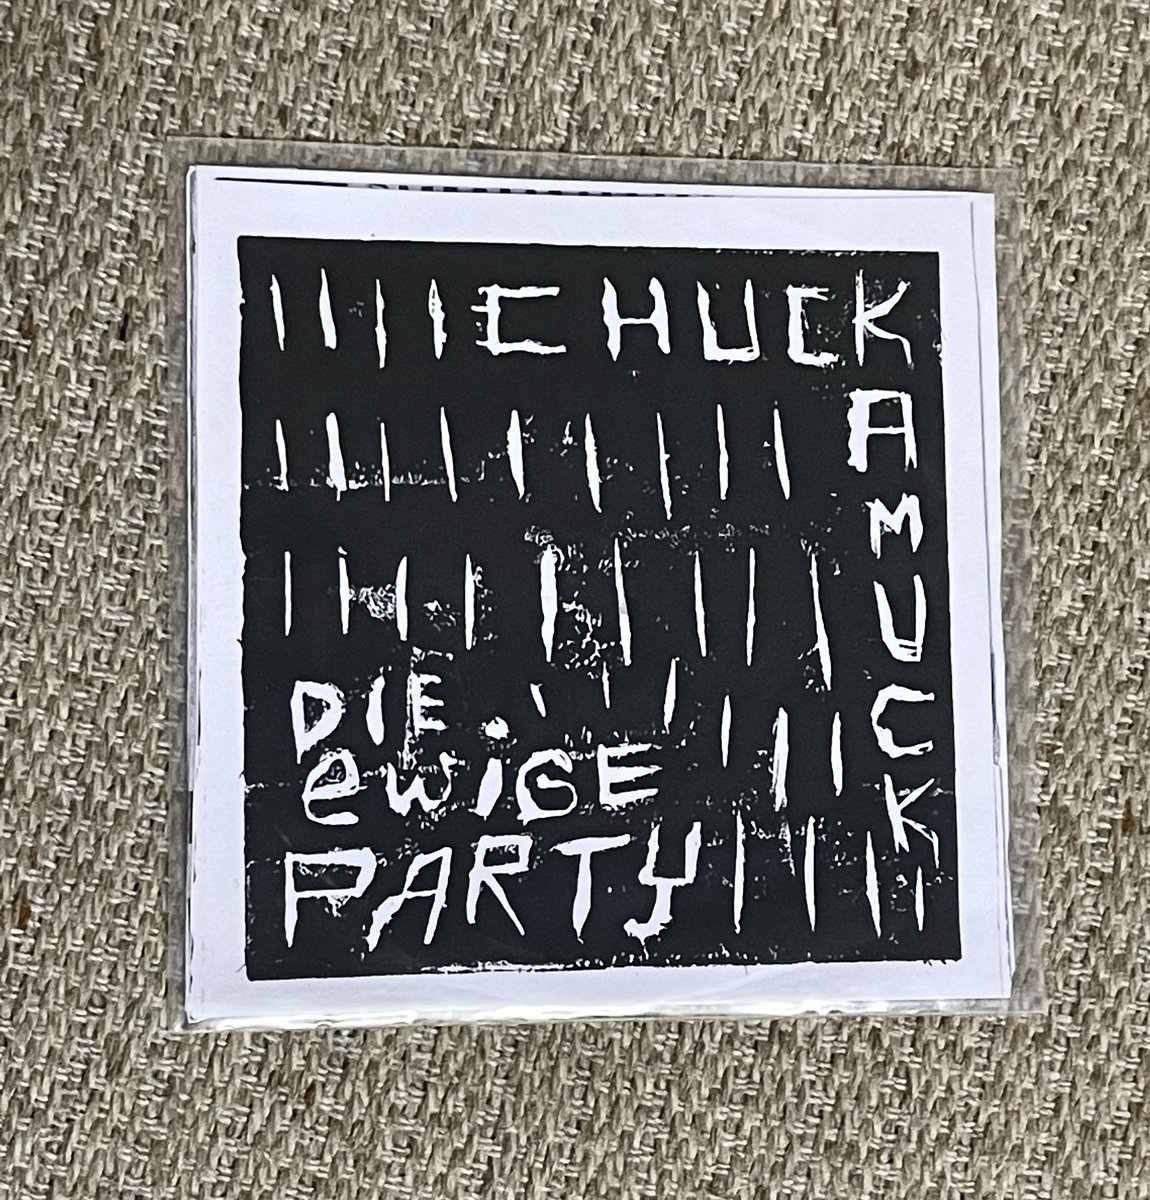 CHUCK
KAMUCK
DIE
eWiGE
PARTY